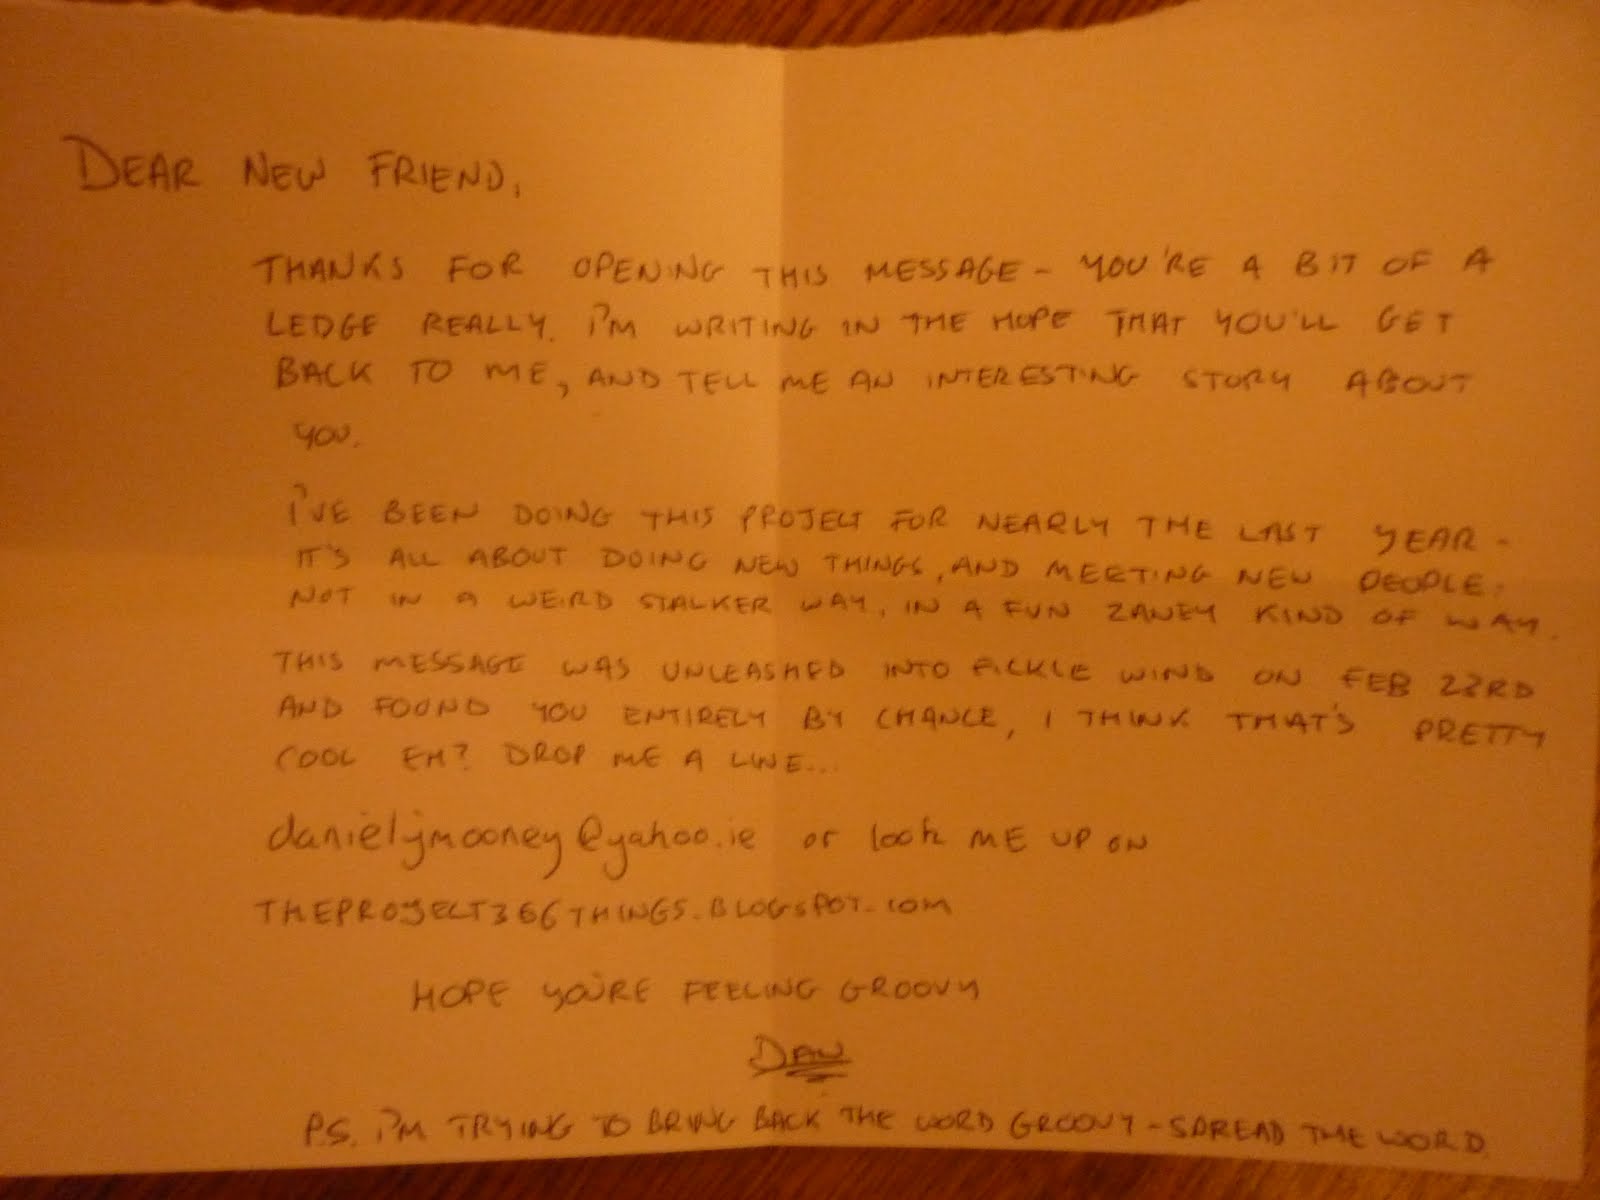 DEAR NEW FRIEND,
THANKS FOR OPENING THIS MESSAGE - YOU'RE A BIT OF A
LEDGE REALLY. I'M WRITING IN THE HOPE THAT YOU'LL GET
BACK TO ME, AND TELL ME AN INTERESTING STORY ABOUT
YOU.
I'VE BEEN DOING THIS PROJECT FOR NEARLY THE LAST YEAR -
IT'S ALL ABOUT DOING NEW THINGS, AND MEETING NEW PEOPLE.
NOT IN A WEIRD STALKER WAY, IN A FUN ZANEY KIND OF WAY.
THIS MESSAGE WAS UNLEASHED INTO FICKLE WIND ON FEB 23RD
AND FOUND YOU ENTIRELY BY CHANCE, I THINK THAT'S PRETTY
COOL EH? DROP ME A LINE...
danieljmooney@yahoo.ie or look ME UP ON
THEPROJECT366THINGS.BLOGSPOT.COM
HOPE YOU'RE FEELING GROOVY
DAN
P.S. I'M TRYING TO BRING BACK THE WORD GROOVY - SPREAD THE WORD.